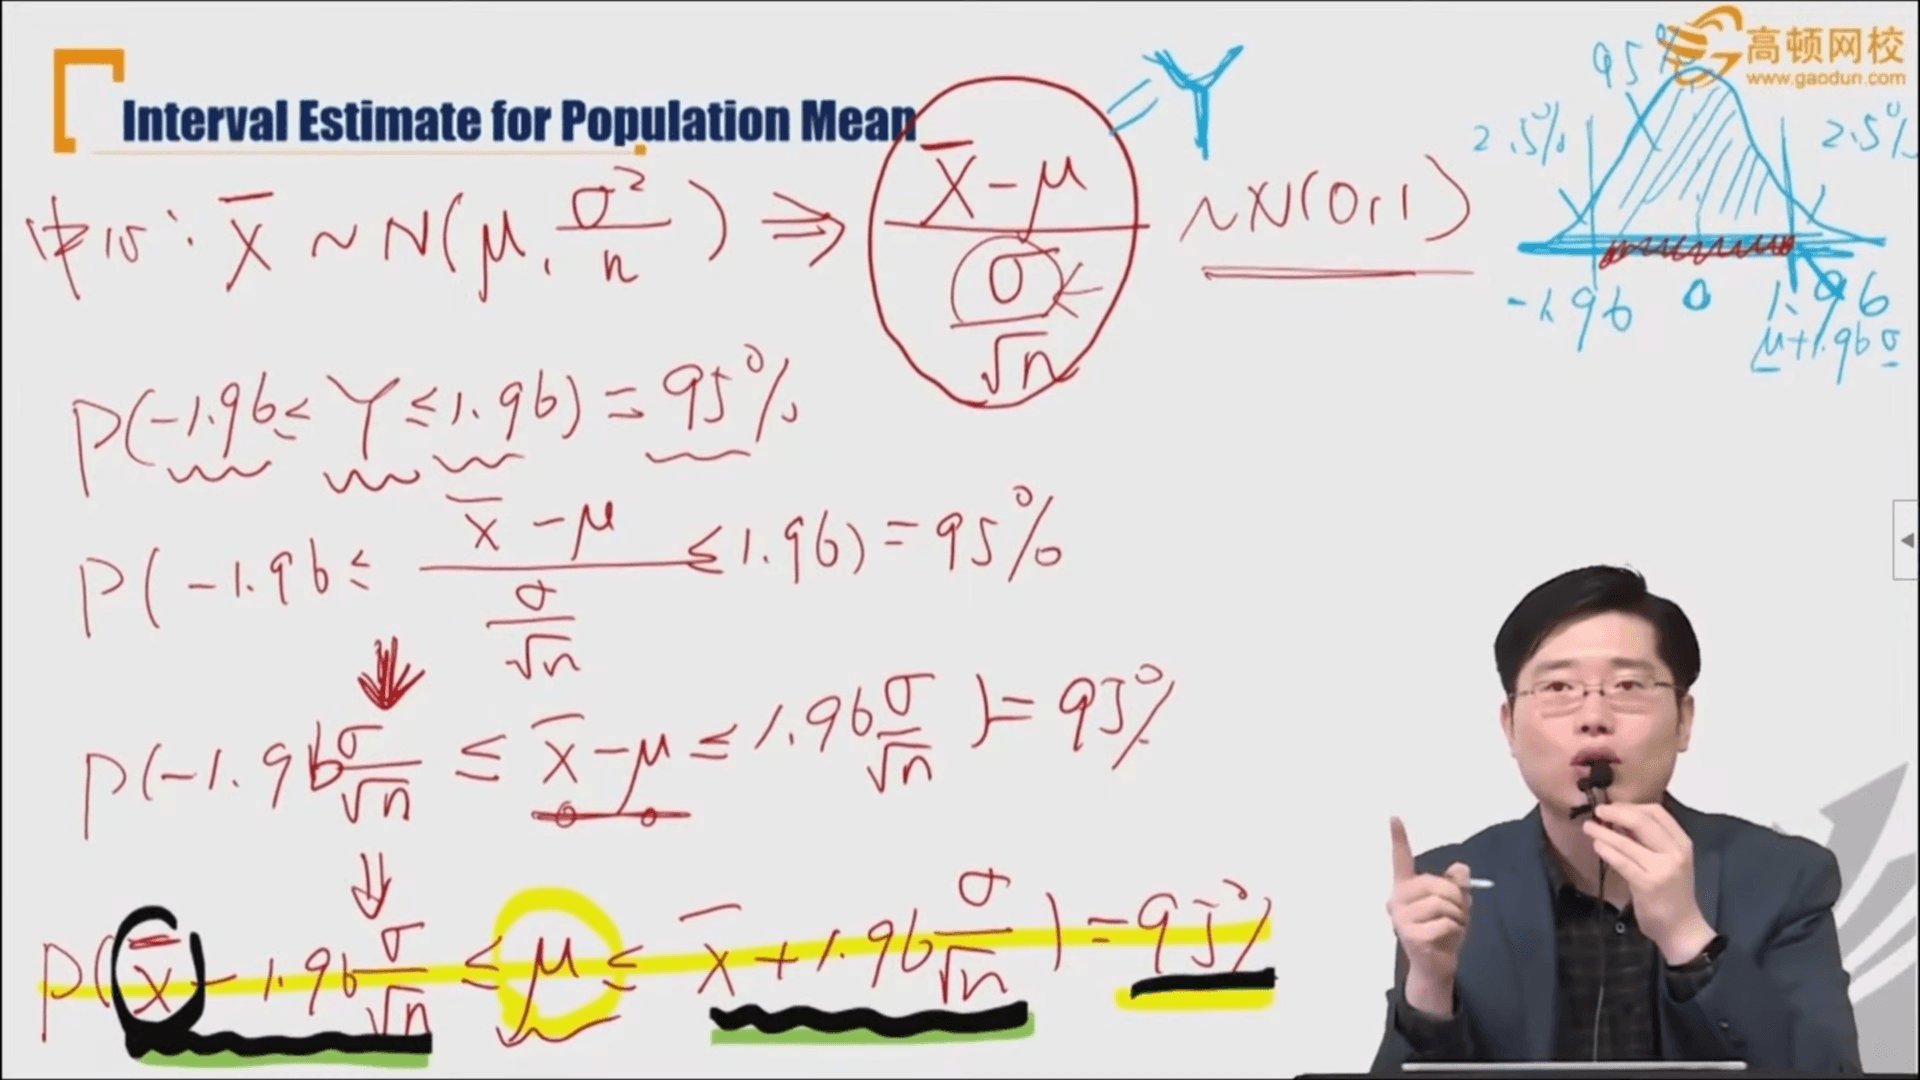 高顿网校
www.gaodun.com
Interval Estimate for Population Mean
X̄ ~ N(μ, σ²/n) ⇒ (X̄-μ)/(σ/√n) ~ N(0,1)
= Y
95%
2.5% 2.5%
-1.96 0 1.96
μ+1.96σ
P(-1.96 ≤ Y ≤ 1.96) = 95%
P(-1.96 ≤ (x̄-μ)/(σ/√n) ≤ 1.96) = 95%
P(-1.96 σ/√n ≤ x̄-μ ≤ 1.96 σ/√n) = 95%
P(x̄ - 1.96 σ/√n ≤ μ ≤ x̄ + 1.96 σ/√n) = 95%